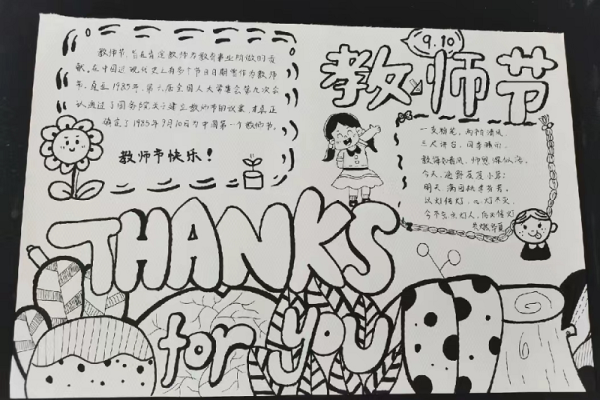 9.10
教师节
教师节,旨在肯定教师为教育事业所做的贡
献。在中国近现代史上有多个节日日期曾作为教师
节。直至1985年,第六届全国人大常委会第九次会
议通过了国务院关于建立教师节的议案,才真正
确定了1985年9月10日为中国第一个教师节。
教师节快乐!
一支粉笔,两袖清风,
三尺讲台,四季耕耘。
教海如春风,师恩深似海。
今天,遍野
明天,满园桃李芬芳。
THANKS
for you